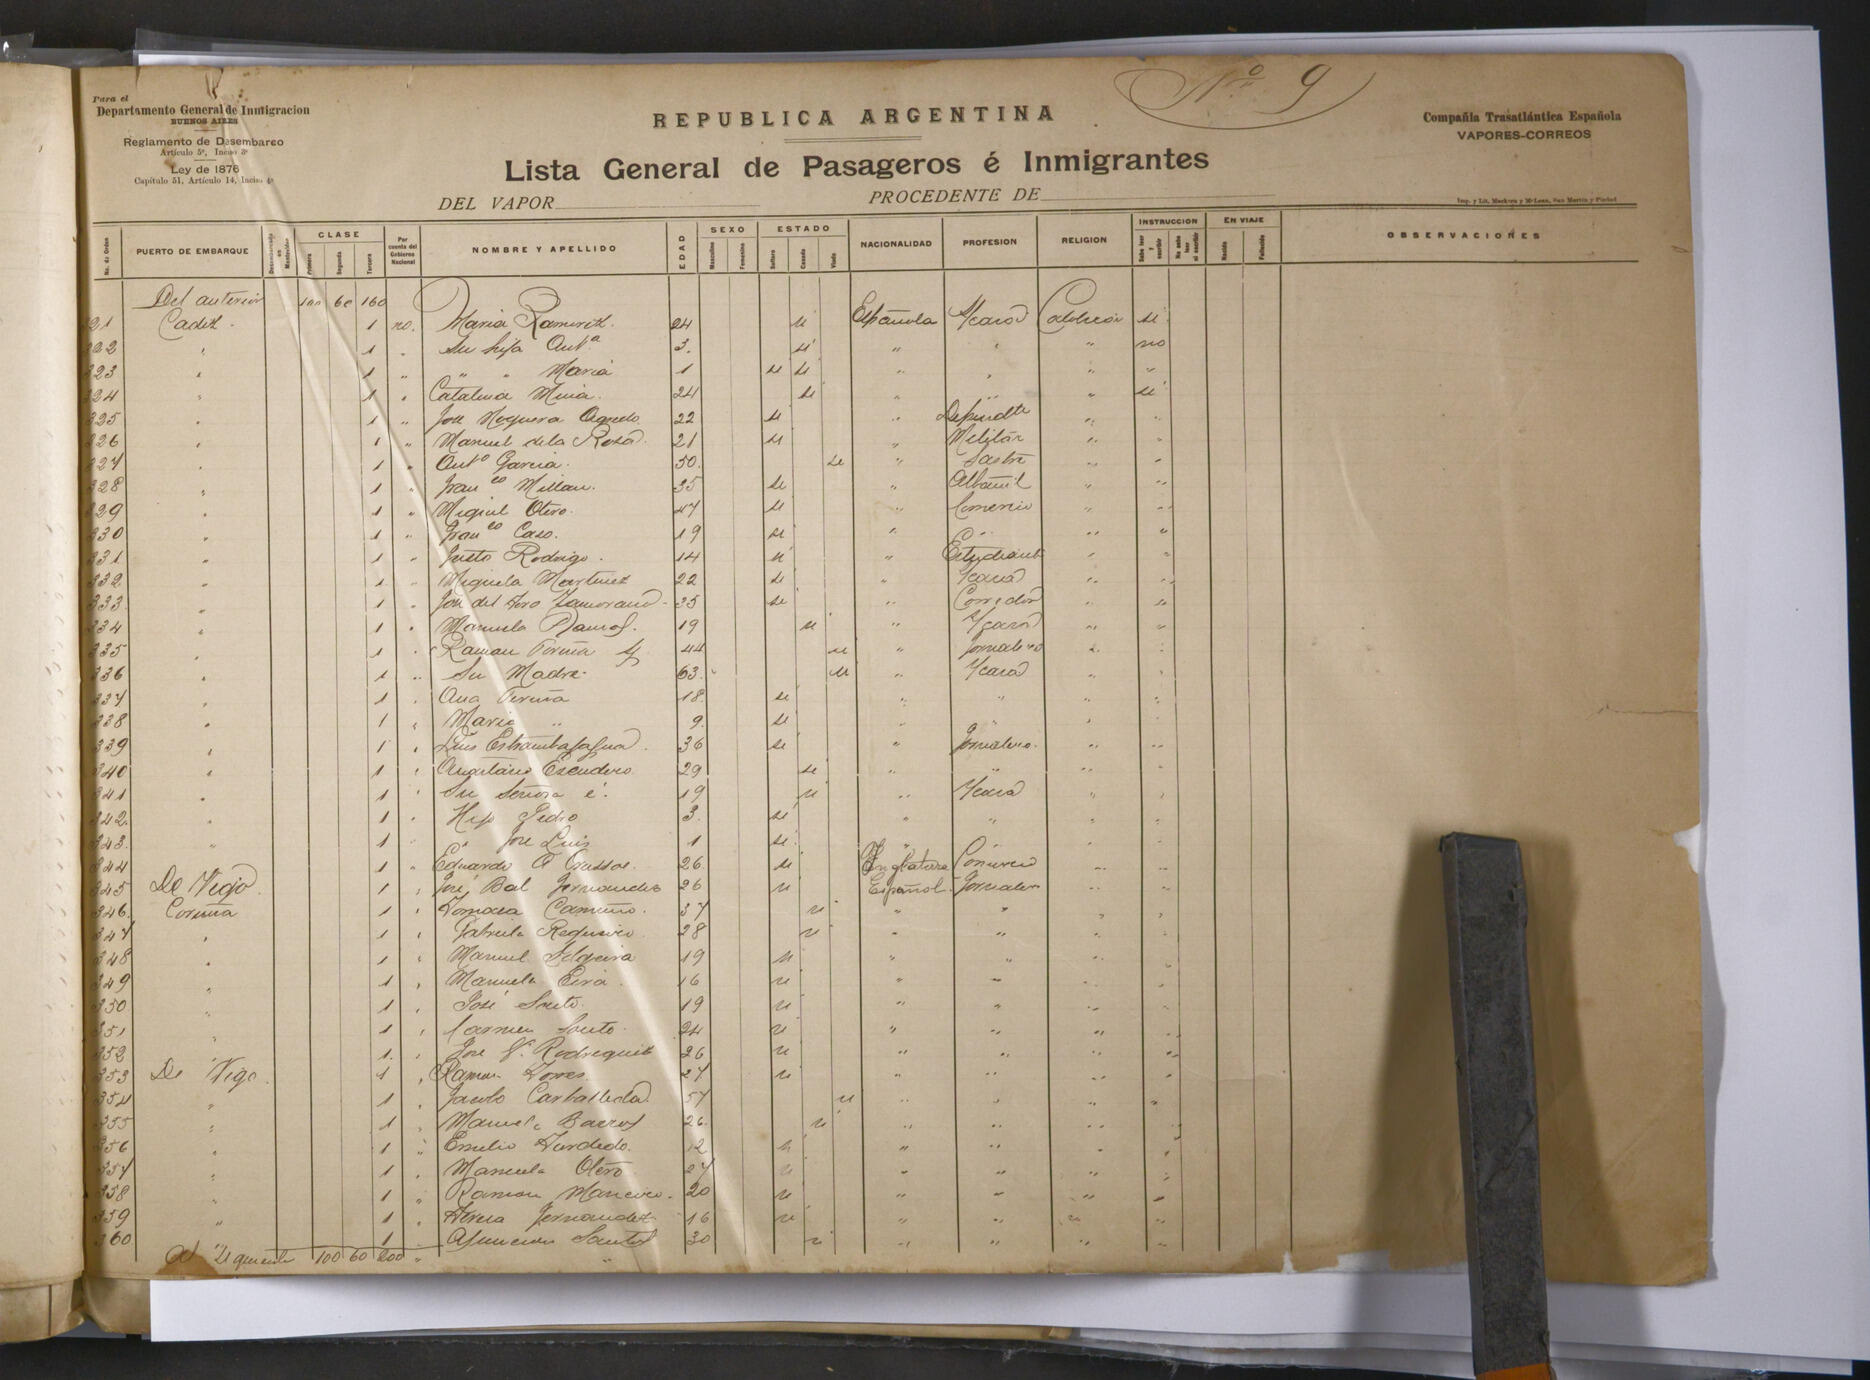 Para el
Departamento General de Inmigracion
BUENOS AIRES
Reglamento de Desembarco
Artículo 5º, Inciso 3º
Ley de 1876
Capítulo 51, Artículo 14, Inciso 4º
Nº 9
REPUBLICA ARGENTINA
Compañia Trasatlántica Española
VAPORES-CORREOS
Lista General de Pasageros é Inmigrantes
DEL VAPOR PROCEDENTE DE
Imp. y Lit. Mackern y McLean, San Martin y Piedad
No. de Orden PUERTO DE EMBARQUE Desembarcado en Montevideo CLASE Primera Segunda Tercera Por cuenta del Gobierno Nacional NOMBRE Y APELLIDO EDAD SEXO Masculino Femenino ESTADO Soltero Casado Viudo NACIONALIDAD PROFESION RELIGION INSTRUCCION Sabe leer y escribir No sabe leer ni escribir EN VIAJE Nacido Fallecido OBSERVACIONES
Del anterior 100 60 160
321 Cadiz 1 no. Maria Ramirez 24 si Española Catolica si
322 " 1 " Su hija Antª 3 si " " " no
323 " 1 " " " Maria 1 si si " " " "
324 " 1 " Catalina 24 si " " " si
325 " 1 " José Noguera 22 si " " "
326 " 1 " Manuel de la Rosa 21 si " Militar " "
327 " 1 " Antº Garcia 50 si " Sastre " "
328 " 1 " Franco Millan 35 si " Albañil " "
329 " 1 " Miguel Otero 47 si " Comercio " "
330 " 1 " Franco Caso 19 si " " " "
331 " 1 " Justo Rodrigo 14 si " Estudiante " "
332 " 1 " Miguela Martinez 22 si " " "
333 " 1 " José del Toro Zamorano 35 si " Corredor " "
334 " 1 " Manuela Ramos 19 si " " "
335 " 1 " Ramon 44 si " Jornalero " "
336 " 1 " Su Madre 63 si " " "
337 " 1 " Ana 18 si " " " "
338 " 1 " Maria " 9 si " " " "
339 " 1 " Luis 36 si " Jornalero " "
340 " 1 " Escudero 29 si " " " "
341 " 1 " Su señora é 19 si " " "
342 " 1 " Hijo Pedro 3 si " " " "
343 " 1 " " José Luis 1 si " " " "
344 1 " Eduardo 26 si Inglaterra Comercio " "
345 De Vigo 1 " José Bal Fernandez 26 si Español Jornalero " "
346 Coruña 1 " 37 si " " " "
347 " 1 " 28 si " " " "
348 " 1 " Manuel 19 si " " " "
349 " 1 " Manuela 16 si " " " "
350 " 1 " José Souto 19 si " " " "
351 " 1 " Carmen Souto 24 si " " " "
352 " 1 " José Rodriguez 26 si " " " "
353 De Vigo 1 " Ramon Torres 27 si " " " "
354 " 1 " Jacobo Carballeda 57 si " " " "
355 " 1 " Manuela Barros 26 si " " " "
356 " 1 " Emilio 12 si " " " "
357 " 1 " Manuela Otero 27 si " " " "
358 " 1 " Ramon 20 si " " " "
359 " 1 " Teresa Fernandez 16 si " " " "
360 1 " Asuncion Santos 30 si " " " "
Al siguiente 100 60 200 "